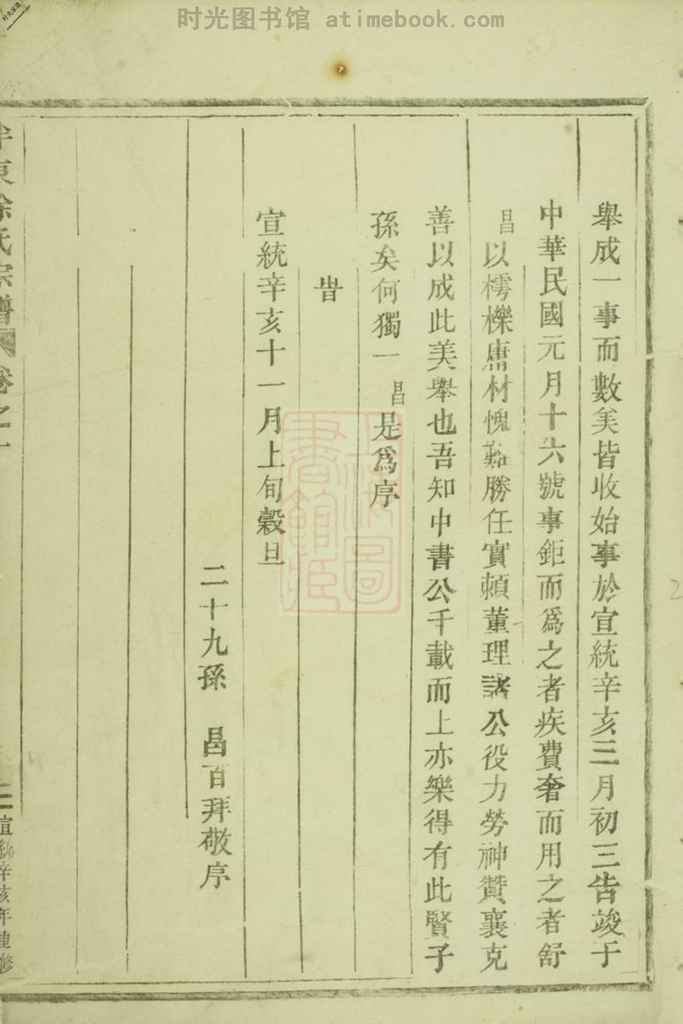 时光图书馆 atimebook.com
舉成一事而數美皆收始事於宣統辛亥三月初三告竣于
中華民國元月十六號事鉅而爲之者疾費奢而用之者舒
昌以樗櫟庸材愧難勝任實賴董理諸公役力勞神贊襄克
善以成此美舉也吾知中書公千載而上亦樂得有此賢子
孫矣何獨一昌是爲序
旹
宣統辛亥十一月上旬穀旦
二十九孫 昌百拜敬序
東徐氏宗譜 卷之一
二 宣統辛亥年重修